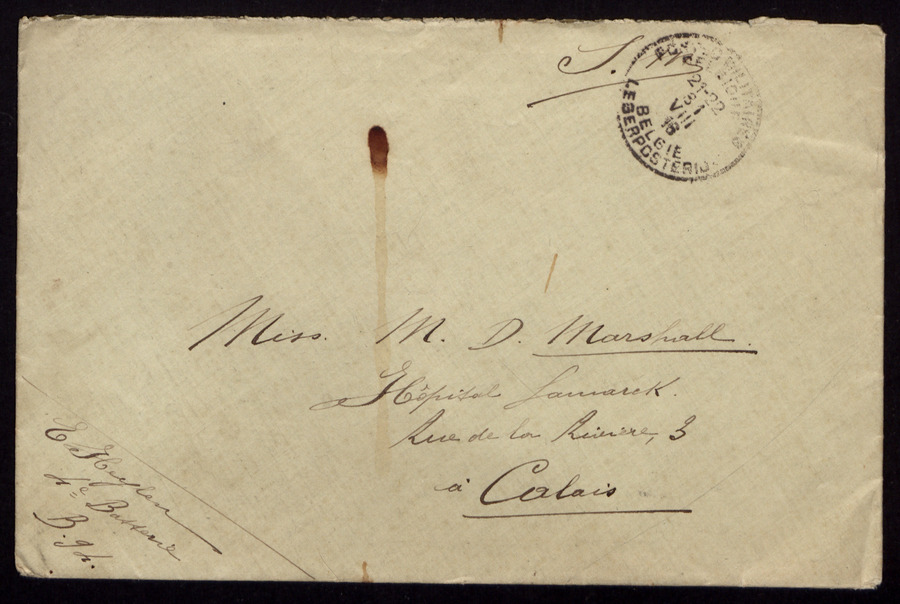 S. M.
POSTES MILITAIRES
BELGIQUE
21-22
31
VIII
16
BELGIE
LEGERPOSTERIJ
Miss. M. D. Marshall.
Hôpital Lamarck.
Rue de la Rivière, 3
à Calais
Heylen
4e Batterie
B. 94.